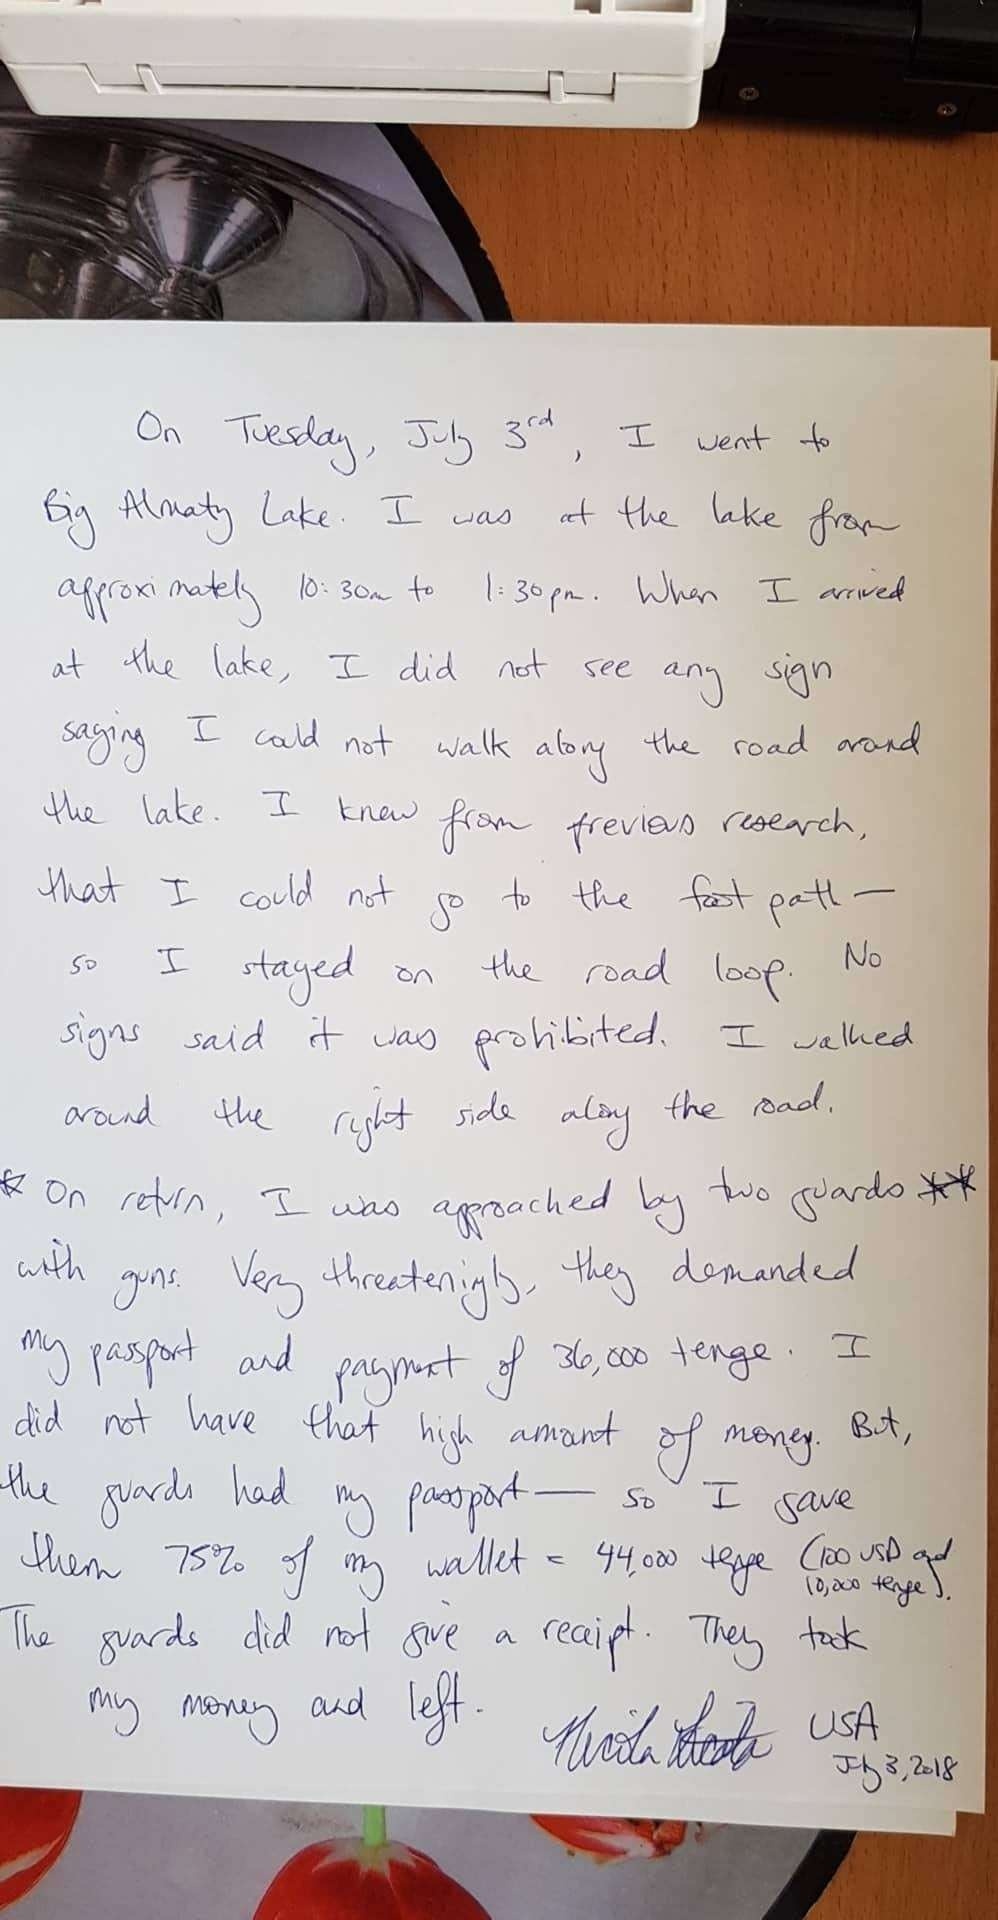 On Tuesday, July 3rd, I went to
Big Almaty Lake. I was at the lake from
approximately 10:30am to 1:30pm. When I arrived
at the lake, I did not see any sign
saying I could not walk along the road around
the lake. I knew from previous research,
that I could not go to the foot path —
so I stayed on the road loop. No
signs said it was prohibited. I walked
around the right side along the road.
* On return, I was approached by two guards **
with guns. Very threateningly, they demanded
my passport and payment of 36,000 tenge. I
did not have that high amount of money. But,
the guards had my passport — so I gave
them 75% of my wallet = 44,000 tenge (100 USD and
10,000 tenge).
The guards did not give a receipt. They took
my money and left.
USA
July 3, 2018